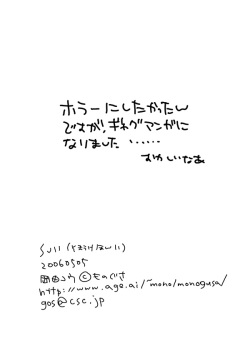 ホラーにしたかったん
ですが、ギャグマンガに
なりました ‥‥‥
おかしいなあ
20060505
岡田コウ ⓒものぐさ
http://www.age.ai/~mono/monogusa/
gos@csc.jp